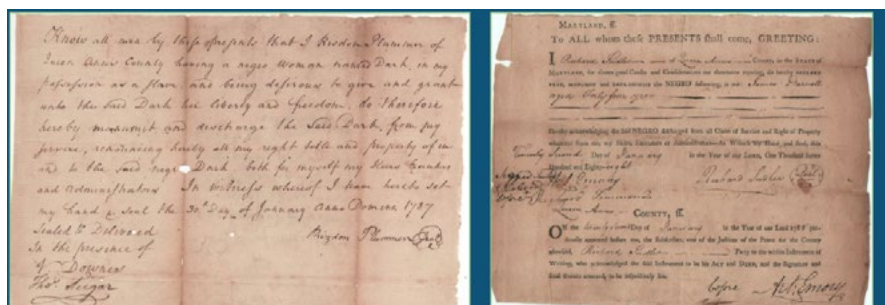 Know all men by these presents that I Risdon Plummer of
Queen Anns County having a negro Woman named Dark, in my
possession as a slave and being desirous to give and grant
unto the Said Dark her liberty and freedom, do therefore
hereby manumit and discharge the Said Dark, from my
service, renouncing hereby all my right title and property of in
and to the Said negro Dark both for myself my Heirs Executors
and Administrators In witness whereof I have hereto set
my hand & seal the 30th Day of January Anno Domini 1787
Sealed & Delivered
in the presence of
Risdon Plummer Seal
Downes
Thos. Seegar
MARYLAND, ff.
To ALL whom these PRESENTS shall come, GREETING:
I Richard of Queen Anns County, in the STATE of
MARYLAND, for divers good Causes and Considerations me thereunto moving, do hereby RELEASE
FREE, MANUMIT and ENFRANCHISE the NEGRO following, to wit James
aged Forty five years
Hereby acknowledging the said NEGRO discharged from all Claim of Service and Right of Property
whatever from me, my Heirs, Executors or Administrators. As Witness my Hand and Seal, this
Twenty Second Day of January in the Year of our LORD, One Thousand Seven
Hundred and Eighty eight
Emory
Richard
Queen Anns
COUNTY, ff.
ON the Day of January in the Year of our Lord 1788 per-
sonally appeared before me, the Subscriber, one of the Justices of the Peace for the County
aforesaid, Richard Party to the within Instrument of
Writing, who acknowledged the said Instrument to be his ACT and DEED, and the Signature and
Seal thereto annexed, to be respectively his.
before Emory